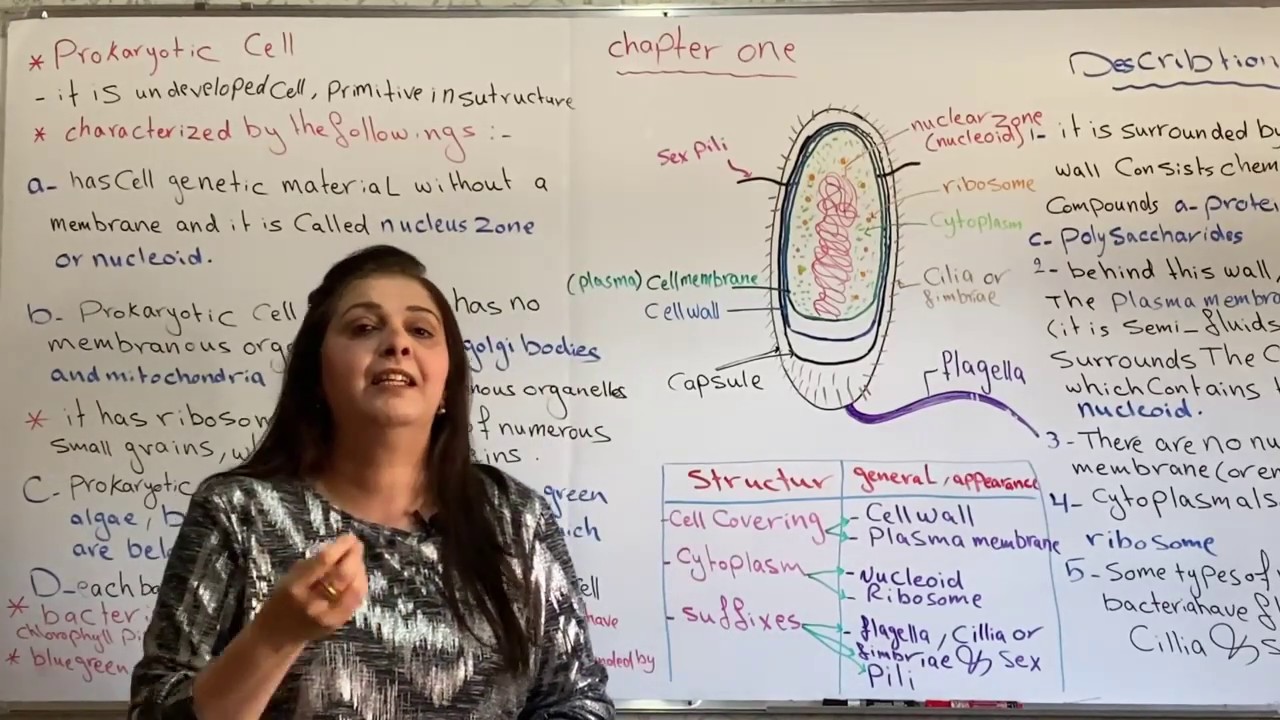 * Prokaryotic Cell
- it is undeveloped cell, primitive in sutructure
* characterized by the followings :-
a- has Cell genetic material without a
membrane and it is Called nucleus Zone
or nucleoid.
b- Prokaryotic Cell has no
membranous golgi bodies
and mitochondria organelles
* it has numerous
small grains,
C- Prokaryotic green
algae,
are
D- each
* bacteri have
chlorophyll
* bluegreen by
chapter one
Sex pili
nuclear zone
(nucleoid)
ribosome
Cytoplasm
(plasma) Cell membrane
Cell wall
Cilia or
fimbriae
Capsule
flagella
Structur general, appearance
- Cell Covering - Cell wall
- Plasma membrane
- Cytoplasm - Nucleoid
- Ribosome
- suffixes - flagella, Cillia or
fimbriae & Sex
Pili
Describtion
1- it is surrounded by
wall Consists chem
Compounds a- protei
c- polysaccharides
2- behind this wall,
The plasma membra
(it is Semi_fluids
Surrounds The C
which Contains
nucleoid.
3- There are no nu
membrane (or
4- Cytoplasm als
ribosome
5- Some types of
bacteria have fl
Cillia & S